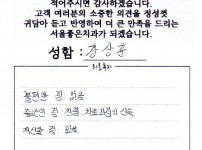 적어주시면 감사하겠습니다.
고객 여러분의 소중한 의견을 정성껏
귀담아 듣고 반영하여 더 큰 만족을 드리는
서울좋은치과가 되겠습니다.
성함 : 강상훈
불편한 점 : 없음
좋았던 점 : 친절, 치료과정의 신속
개선할 점 : 없음